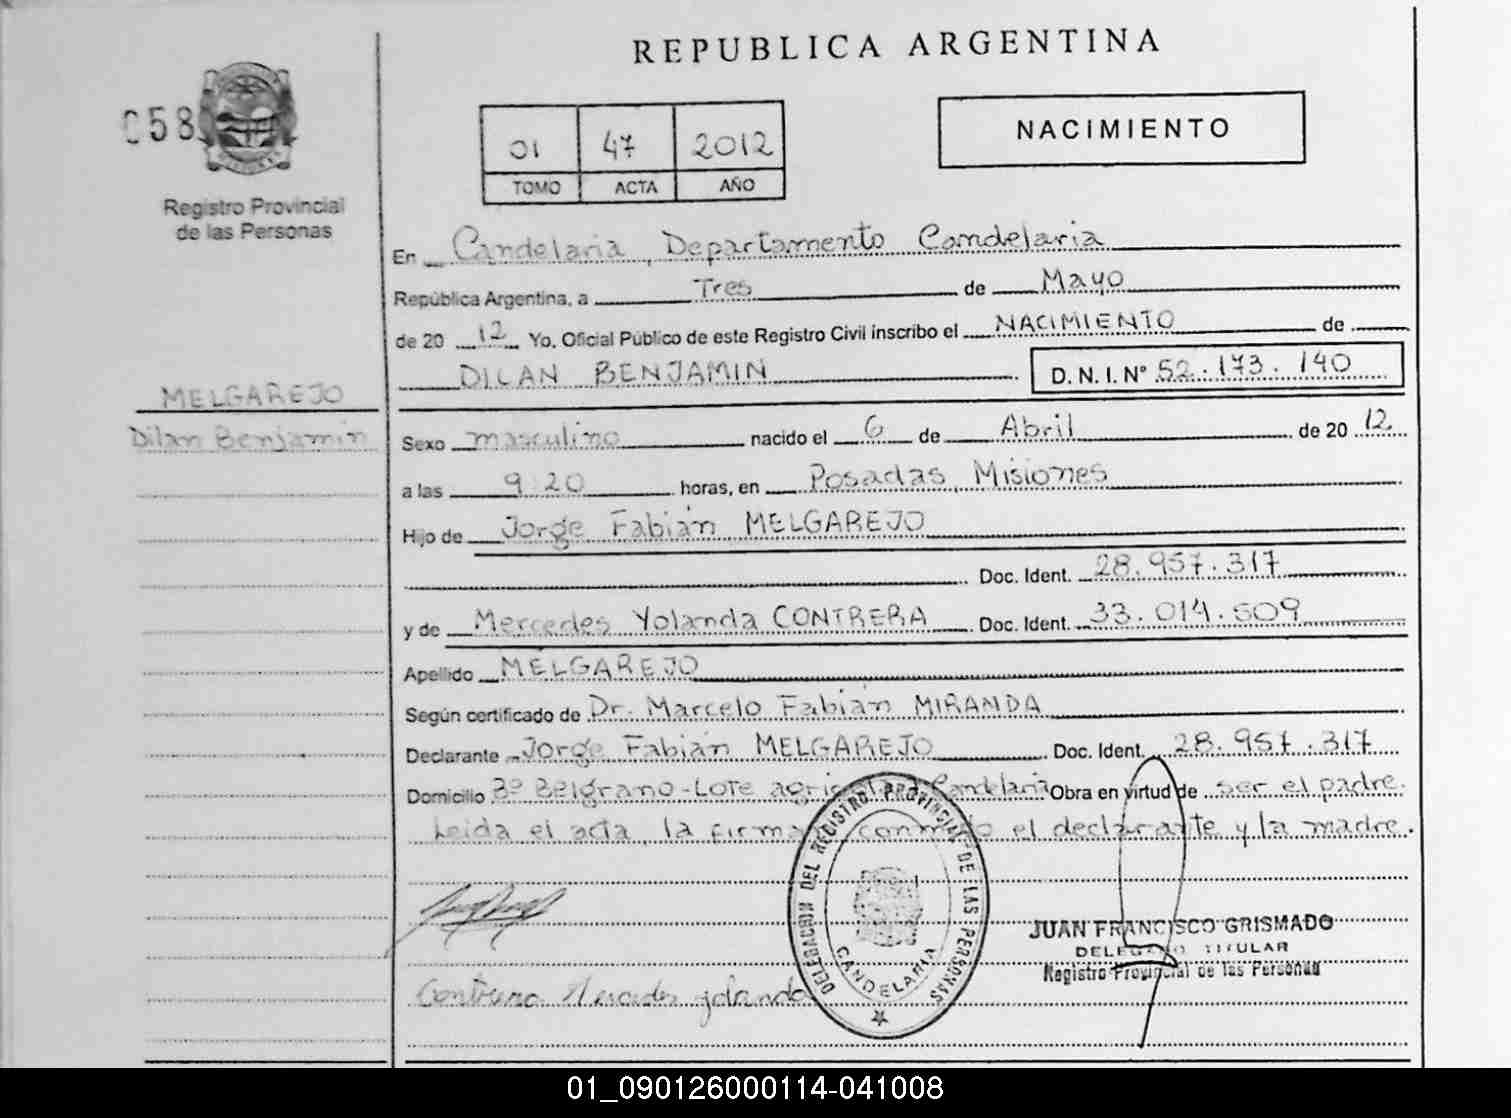 REPUBLICA ARGENTINA
058
Registro Provincial
de las Personas
01 47 2012
TOMO ACTA AÑO
NACIMIENTO
En Candelaria, Departamento Candelaria
República Argentina, a Tres de Mayo
de 20 12 Yo, Oficial Público de este Registro Civil inscribo el NACIMIENTO de
DILAN BENJAMIN D. N. I. N° 52.173.140
MELGAREJO
Dilan Benjamin
Sexo masculino nacido el 6 de Abril de 20 12
a las 9:20 horas, en Posadas, Misiones
Hijo de Jorge Fabián MELGAREJO
Doc. Ident. 28.957.317
y de Mercedes Yolanda CONTRERA Doc. Ident. 33.014.509
Apellido MELGAREJO
Según certificado de Dr. Marcelo Fabián MIRANDA
Declarante Jorge Fabián MELGAREJO Doc. Ident. 28.957.317
Domicilio Bº Belgrano-Lote agricola Candelaria Obra en virtud de ser el padre.
Leida el acta, la firma conmigo el declarante y la madre.
DELEGACION DEL REGISTRO PROVINCIAL DE LAS PERSONAS
CANDELARIA
JUAN FRANCISCO GRISMADO
DELEGADO TITULAR
Registro Provincial de las Personas
Contrera Mercedes yolanda
01_090126000114-041008